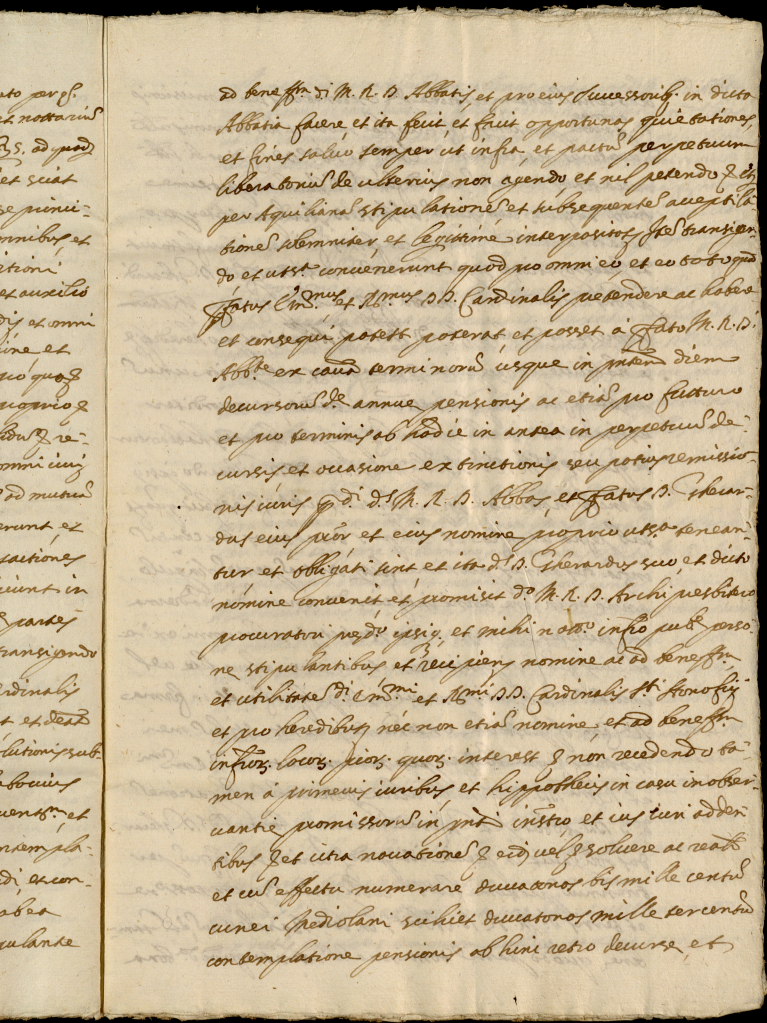 ato per
et nottariu
ad quod
et sciat
se princi-
mnibus et
itioni
et auxilio
dis et omni
ione et
re-
omni
ad mutua
erunt et
sactiones
iunt in
partes
transigendo
ardinalis
t et
lutionis sub-
bocius
et
ntempla-
di, et con-
abea
pulante
ad beneff.m di M. R. D. Abbatis, et pro eius successorib. in dicta
Abbatia facere et ita fecit, et facit opportunas quietationes,
et fines salvo semper ut infra et pactu perpetuum
liberatoriu de ulterius non agendo et nil petendo
per Aquiliana stipulatione et subsequente acceptila
tione solemniter, et legittime interpositos Ite transigen
do et ut s.a convenerunt quod pro omni eo, et eo toto quod
ffatus Em.mus et R.mus D.D. Cardinalis pretendere ac habere
et consequi potest poterat et posset a ffato M. R. D.
Abb.te ex causa terminoru usque in pntem diem
decursoru d.e annue pensionis ac etia pro futturo
et pro terminis ab hodie in antea in perpetuu de-
cursis et occasione extinctionis seu potius remissio-
nis iuris pdi d.s M. R. D. Abbas, et ffatus D. Gherar-
dus eius pror et eius nomine proprio ut s.a tenean-
tur et obbligati sint et ita d.s D. Gherardus suo, et dicto
nomine convenit et promisit d.o M. R. D. Archipresbitero
procuratori et mihi nott.o infro pub.e perso-
ne stipulantibus et recipien nomine ac ad beneff.m
et utilitate di Em.mi et R.mi D.D. Cardinalis S.ti Honofrij
et pro heredibus nec non etia nomine et ad beneff.m
infror. locor. pior. quor. interest non recedendo ta-
men a primevis iuribus et hippothecis in casu inobser-
vantie promissoru in pnti instro, et ius iuri adden-
tibus et citra novatione solvere ac
et cu effectu numerare ducatonos bis mille centu
cunei Mediolani scilicet ducatonos mille tercentu
contemplatione pensionis ab hinc retro decurse, et